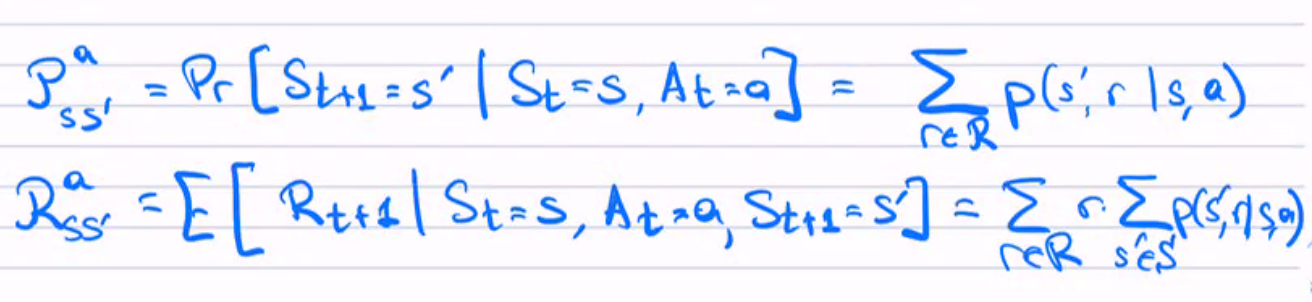 𝒫ᵃₛₛ' = Pr [Sₜ₊₁ = s' | Sₜ = s, Aₜ = a] = ∑_{r∈ℛ} p(s', r | s, a)
ℛᵃₛₛ' = E [Rₜ₊₁ | Sₜ = s, Aₜ = a, Sₜ₊₁ = s'] = ∑_{r∈ℛ} r · ∑_{s'∈S} p(s', r | s, a)